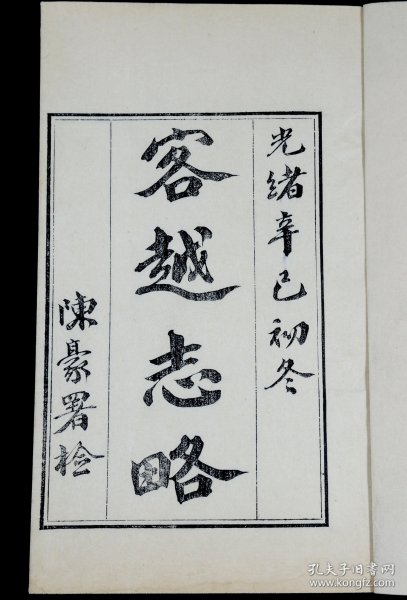 光緒辛巳初冬
客越志略
陳豪署檢
孔夫子旧书网
www.kongfz.com